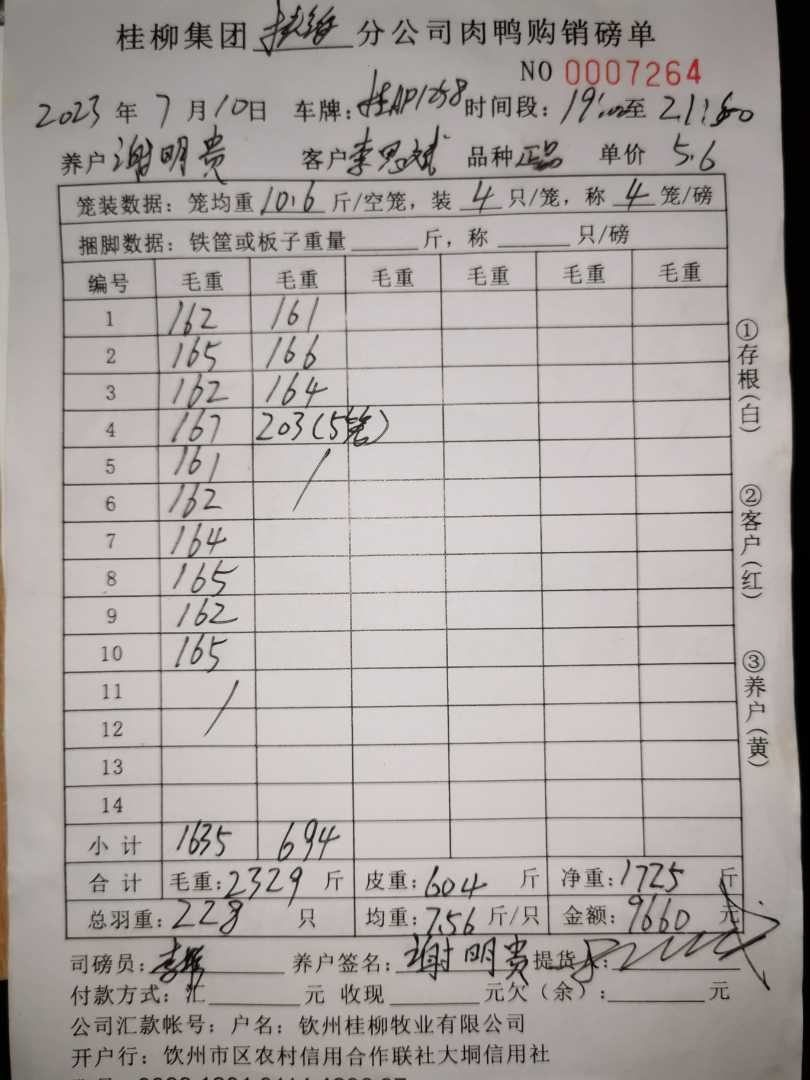 桂柳集团 分公司肉鸭购销磅单
NO 0007264
2023 年 7 月 10 日 车牌：桂AP1258 时间段：19:00至 21:50
养户 谢明贵 客户 李思斌 品种 正品 单价 5.6
笼装数据：笼均重 10.6 斤/空笼，装 4 只/笼，称 4 笼/磅
捆脚数据：铁筐或板子重量______斤，称______只/磅
编号 毛重 毛重 毛重 毛重 毛重 毛重
1 162 161
2 165 166
3 162 164
4 167 203(5笼)
5 161 /
6 162
7 164
8 165
9 162
10 165
11 /
12
13
14
小计 1635 694
合计 毛重：2329 斤 皮重：604 斤 净重：1725 斤
总羽重：228 只 均重：7.56 斤/只 金额：9660 元
司磅员： 养户签名：谢明贵 提货人：
付款方式：汇______元 收现______元欠（余）：______元
公司汇款帐号：户名：钦州桂柳牧业有限公司
开户行：饮州市区农村信用合作联社大垌信用社
①存根(白)
②客户(红)
③养户(黄)